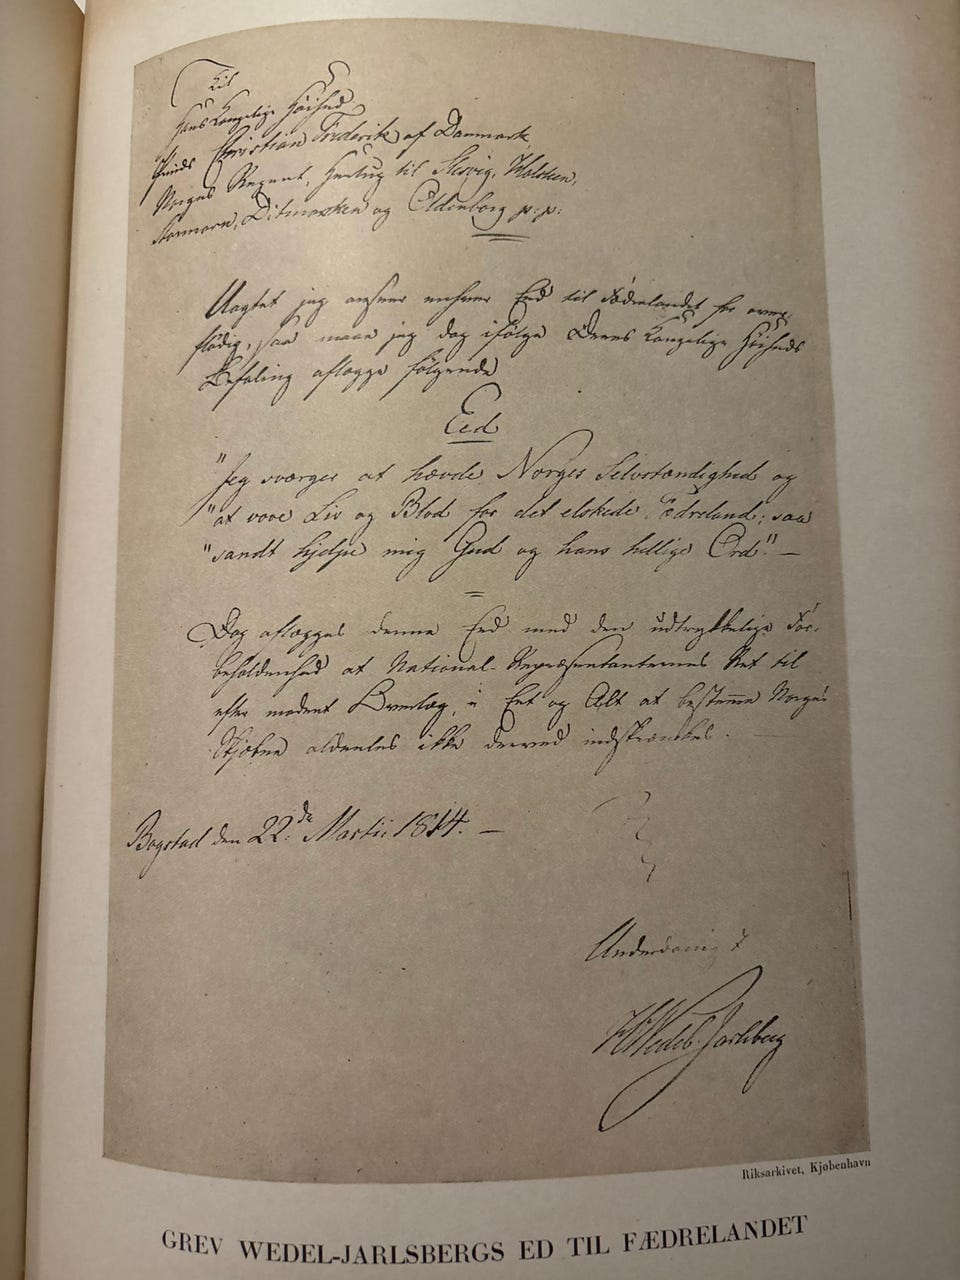 Til
Hans Kongelige Høihed
Prinds Christian Frederik af Danmark,
Norges Regent, Hertug til Slesvig, Holsteen,
Stormarn, Ditmarsken og Oldenborg p: p:
Uagtet jeg anseer enhver Eed til Fødrelandet for over-
flødig, saa maae jeg dog ifølge Deres Kongelige Høiheds
Befaling aflægge følgende
Eed
"Jeg sværger at hævde Norges Selvstændighed og
"at vove Liv og Blod for det elskede Fædreland; saa
"sandt hjelpe mig Gud og hans hellige Ord." —
Dog aflægges denne Eed med den udtrykkelige For-
beholdenhed at National-Repræsentanternes Ret til
efter modent Overlæg, i Eet og Alt at bestemme Norges
Skjæbne aldeeles ikke derved indskrænkes.
Bogstad den 22de Martii 1814. —
Underdanigst
HWedel Jarlsberg
Riksarkivet, Kjøbenhavn
GREV WEDEL-JARLSBERGS ED TIL FÆDRELANDET